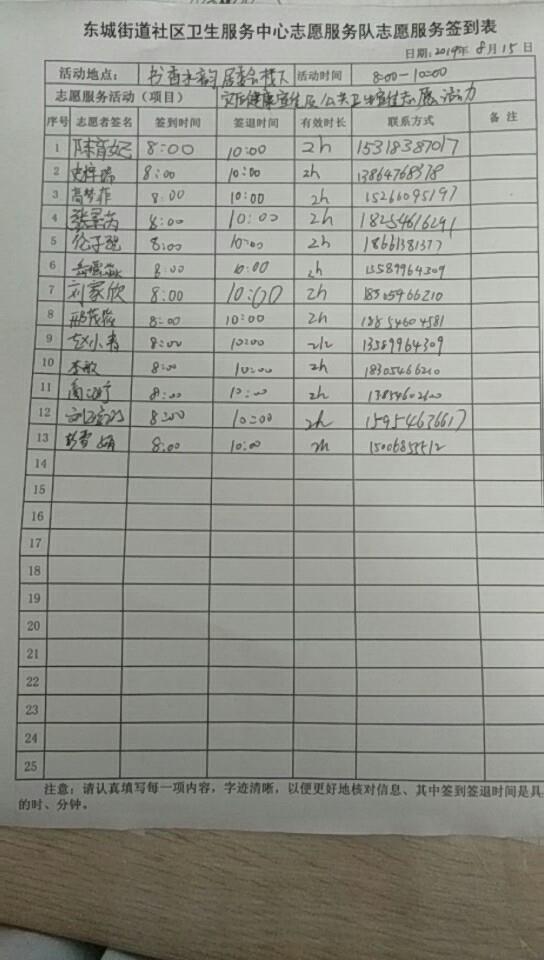 东城街道社区卫生服务中心志愿服务队志愿服务签到表
日期:2019年8月15日
活动地点: 书香水韵居委会楼下 活动时间 8:00-10:00
志愿服务活动(项目) 健康宣传及公共卫生宣传志愿活动
序号 志愿者签名 签到时间 签退时间 有效时长 联系方式 备注
1 陈育妃 8:00 10:00 2h 15318387017
2 8:00 10:00 2h 13864768378
3 高梦菲 8:00 10:00 2h 15266095197
4 8:00 10:00 2h 18254616291
5 8:00 10:00 2h 18661381377
6 8:00 10:00 2h 13589964309
7 刘家欣 8:00 10:00 2h 18305466210
8 8:00 10:00 2h 18854604581
9 赵小青 8:00 10:00 2h 13589964309
10 李敏 8:00 10:00 2h 18305466210
11 8:00 10:00 2h
12 8:00 10:00 2h 15954636617
13 彭雪娟 8:00 10:00 2h 15006855512
14
15
16
17
18
19
20
21
22
23
24
25
注意:请认真填写每一项内容,字迹清晰,以便更好地核对信息、其中签到签退时间是具
的时、分钟。